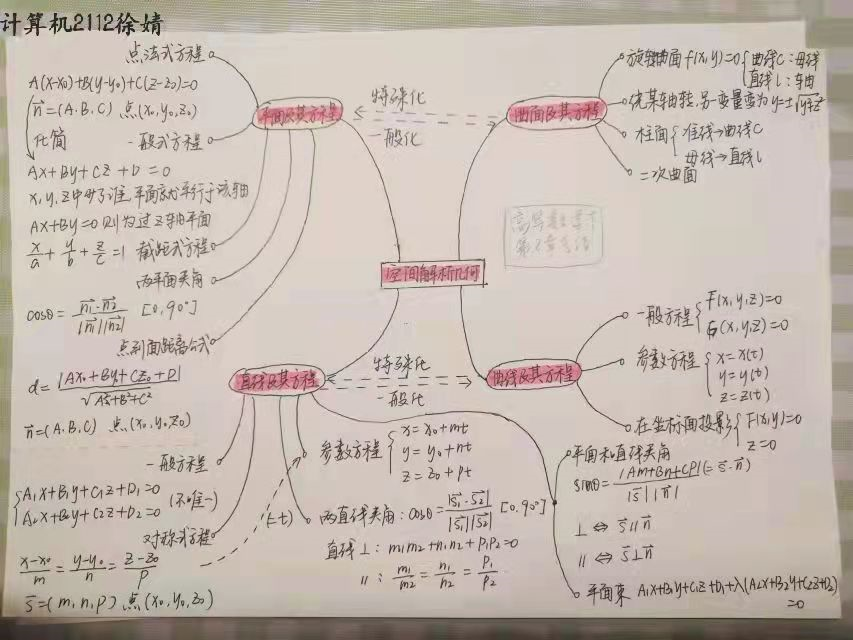 计算机2112徐婧
点法式方程
A(x-x₀)+B(y-y₀)+C(z-z₀)=0
n⃗=(A.B.C) 点(x₀,y₀,z₀)
化简
一般式方程
Ax+By+Cz+D=0
x,y,z中少了谁,平面就平行于该轴
Ax+By=0则为过z轴平面
x/a+y/b+z/c=1 截距式方程
两平面夹角
cosθ=n₁⃗·n₂⃗/|n₁⃗||n₂⃗| [0,90°]
点到面距离公式
d=|Ax₀+By+Cz₀+D|/√A²+B²+C²
n⃗=(A.B.C) 点(x₀,y₀,z₀)
平面及其方程
特殊化
一般化
曲面及其方程
旋转曲面 f(x,y)=0 { 曲线C:母线
直线l:轴由
绕某轴转,另一变量变为y=±√y²+z²
柱面 { 准线→曲线C
母线→直线l
二次曲面
高等数学下
空间解析几何
直线及其方程
特殊化
一般化
曲线及其方程
一般方程 { F(x,y,z)=0
G(x,y,z)=0
参数方程 { x=x(t)
y=y(t)
z=z(t)
在坐标面投影 { F(x,y)=0
z=0
一般方程
{ A₁x+B₁y+C₁z+D₁=0
A₂x+B₂y+C₂z+D₂=0 (不唯一)
对称式方程
(=t)
x-x₀/m=y-y₀/n=z-z₀/p
s⃗=(m,n,p) 点(x₀,y₀,z₀)
参数方程 { x=x₀+mt
y=y₀+nt
z=z₀+pt
两直线夹角:cosθ=|s₁⃗·s₂⃗|/|s₁⃗||s₂⃗| [0.90°]
直线⊥: m₁m₂+n₁n₂+p₁p₂=0
∥: m₁/m₂=n₁/n₂=p₁/p₂
平面和直线夹角
sinθ=|Am+Bn+Cp|(=s⃗·n⃗)/|s⃗||n⃗|
⊥⇔s⃗∥n⃗
∥⇔s⃗⊥n⃗
平面束 A₁x+B₁y+C₁z+D₁+λ(A₂x+B₂y+C₂z+D₂)
=0